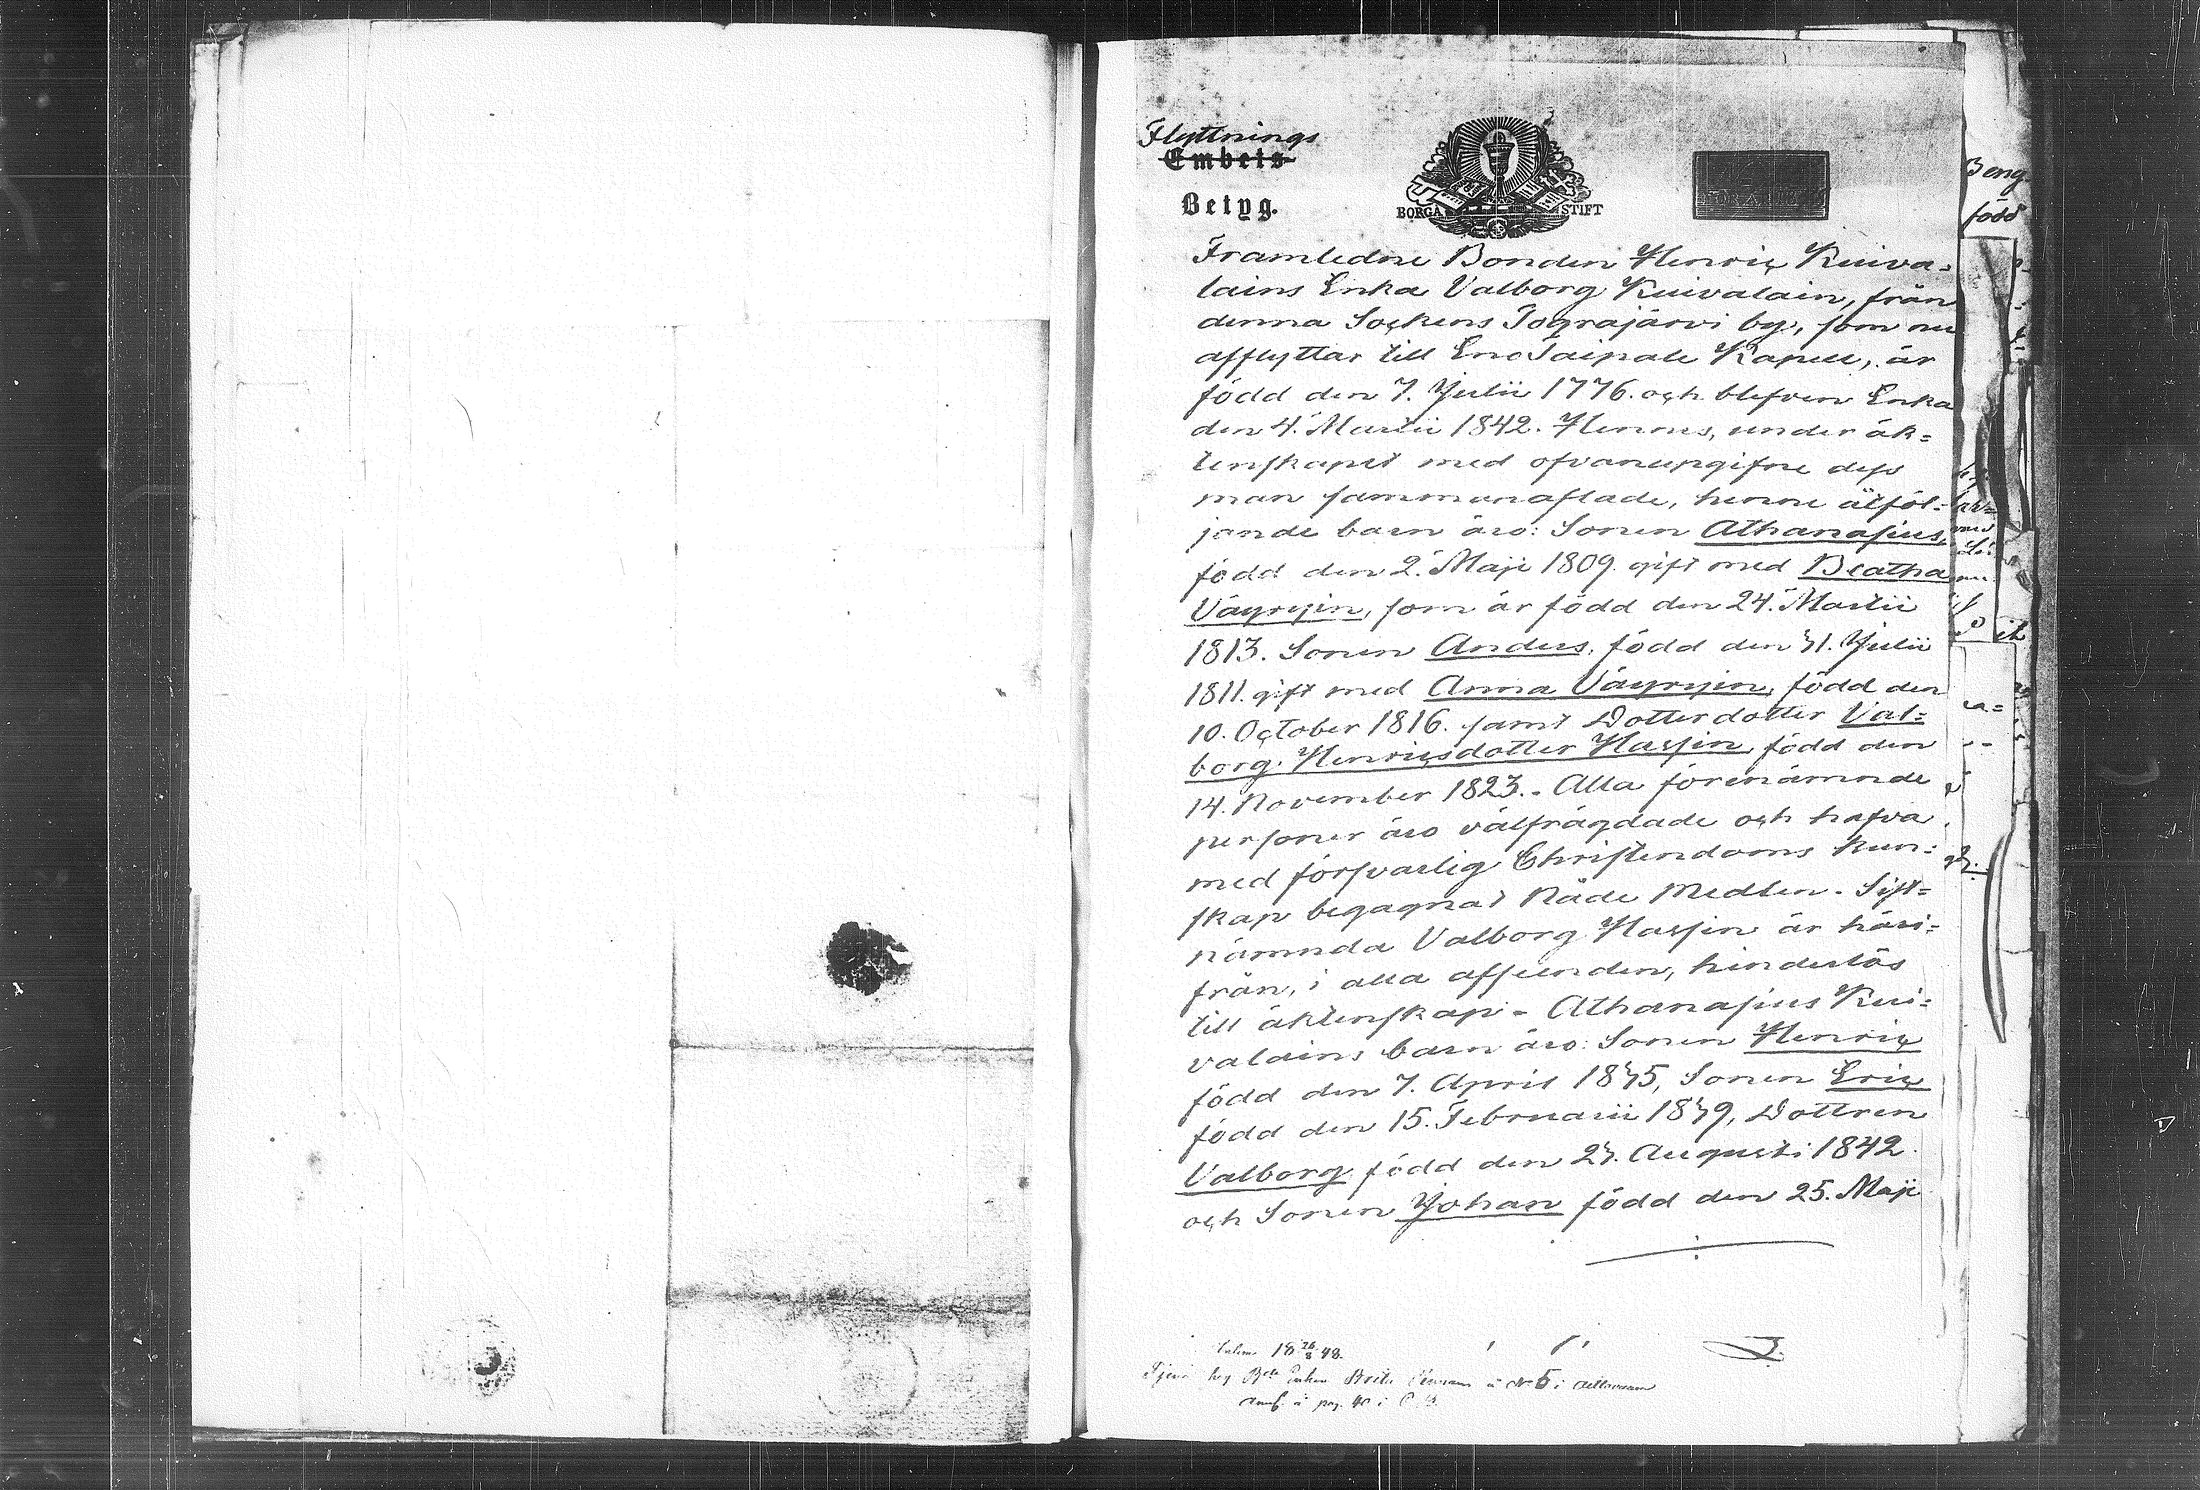 Flyttnings
Embets
Betyg.
BORGÅ STIFT
Framledne Bonden Henric Kuiva=
lains Enka Valborg Kuivalain, från
denna Sockens Tograjärvi by, som nu
afflyttar till Eno Taipale Kapell, är
född den 7. Julii 1776. och blefven Enka
den 4. Martii 1842. Hennes, under äk=
tenskapet med ofvanupgifne dess
man sammanaflade, henne åtföl=
jande barn äro: Sonen Athanasius,
född den 2. Maji 1809. gift med Beatha
Väyryin, som är född den 24. Martii
1813. Sonen Anders, född den 31. Julii
1811. gift med Anna Väyryin, född den
10. October 1816. samt Dotterdotter Val=
borg Henricsdotter Hassin, född den
14. November 1823. - Alla förenämnde
personer äro välfrägdade och hafva
med försvarlig Christendoms kun=
skap begagnat Nåde Medlen. Sist=
nämnda Valborg Hassin är häri=
från, i alla afseenden, hinderlös
till äktenskap. - Athanasius Kui=
valains barn äro: Sonen Henric
född den 7. April 1835, Sonen Eric
född den 15. Februarii 1839, Dottren
Valborg född den 23. Augusti 1842.
och Sonen Johan född den 25. Maji
Beng
född
18 26/8 48.
Enkan Brita å No 5 i
å pag. 40 i